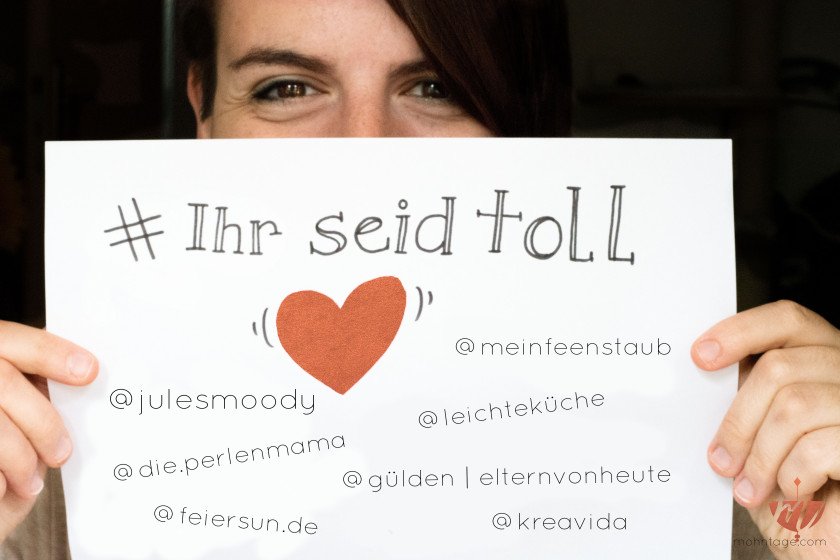 # Ihr seid toll
@meinfeenstaub
@julesmoody
@leichteküche
@die.perlenmama
@gülden | elternvonheute
@feiersun.de
@kreavida
mohntage.com